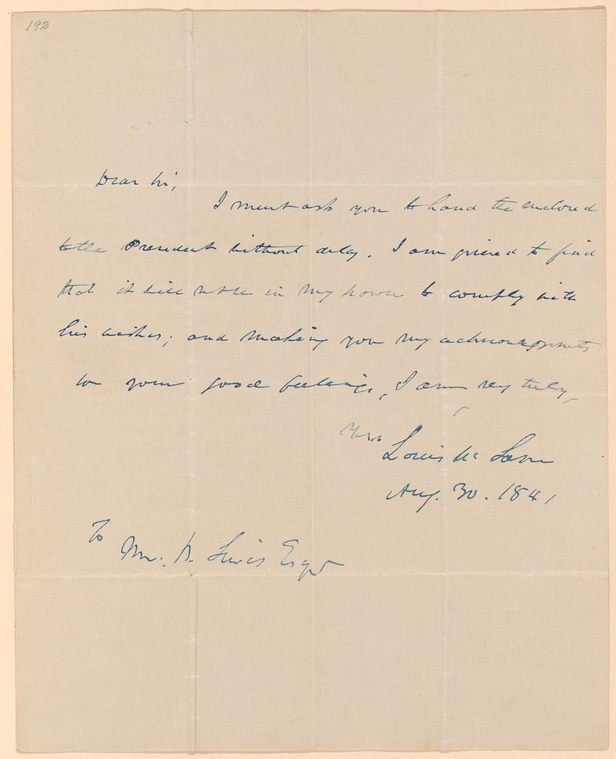 192
Dear Sir,
I must ask you to hand the enclosed
to the President without delay. I am grieved to find
that it will not be in my power to comply with
his wishes; and making you my acknowledgments
for your good feelings, I am very truly,
Yrs
Louis McLane
Aug. 30. 1841
To
Wm. B. Lewis Esqr